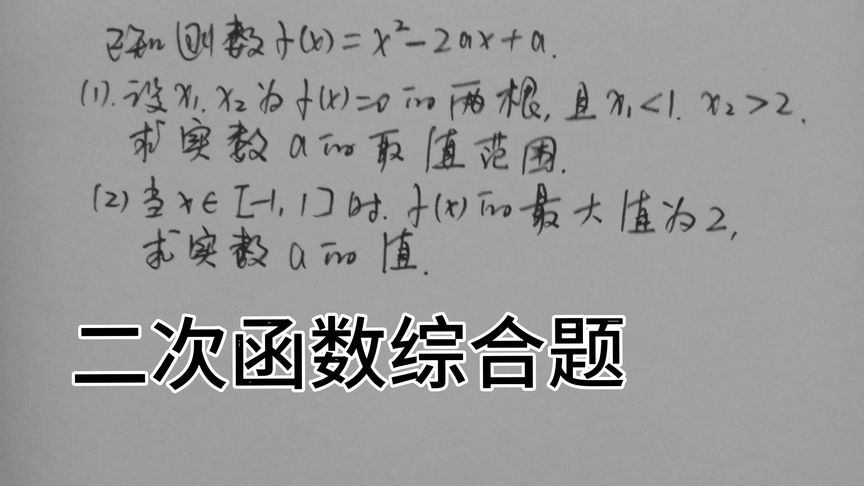 已知函数f(x)=x²-2ax+a.
(1).设x₁.x₂为f(x)=0的两根,且x₁<1.x₂>2.
求实数a的取值范围.
(2)当x∈[-1,1]时.f(x)的最大值为2,
求实数a的值.
二次函数综合题